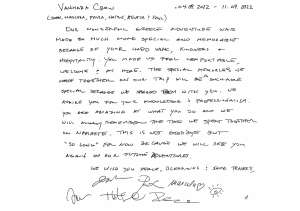 VALHALLA CREW 04.09.2022 - 11.09.2022
OUR MULTIHULL GREECE ADVENTURE WAS
MADE SO MUCH MORE SPECIAL AND MEMORABLE
BECAUSE OF YOUR HARD WORK, KINDNESS &
HOSPITALITY. YOU MADE US FEEL COMFORTABLE,
WELCOME & AT HOME. THE SPECIAL MEMORIES WE
HAVE TOGETHER ON OUR TRIP WILL BE
SPECIAL BECAUSE WE SHARED THEM WITH YOU. WE
THANK YOU FOR YOUR KNOWLEDGE & PROFESSIONALISM.
YOU ARE AMAZING AT WHAT YOU DO AND WE
WILL ALWAYS REMEMBER THE TIME WE SPENT TOGETHER
ON THIS IS NOT GOODBYE BUT
"SO LONG" FOR NOW BECAUSE WE WILL SEE YOU
AGAIN ON OUR FUTURE ADVENTURES
WE WISH YOU PEACE, BLESSINGS & SAFE TRAVELS